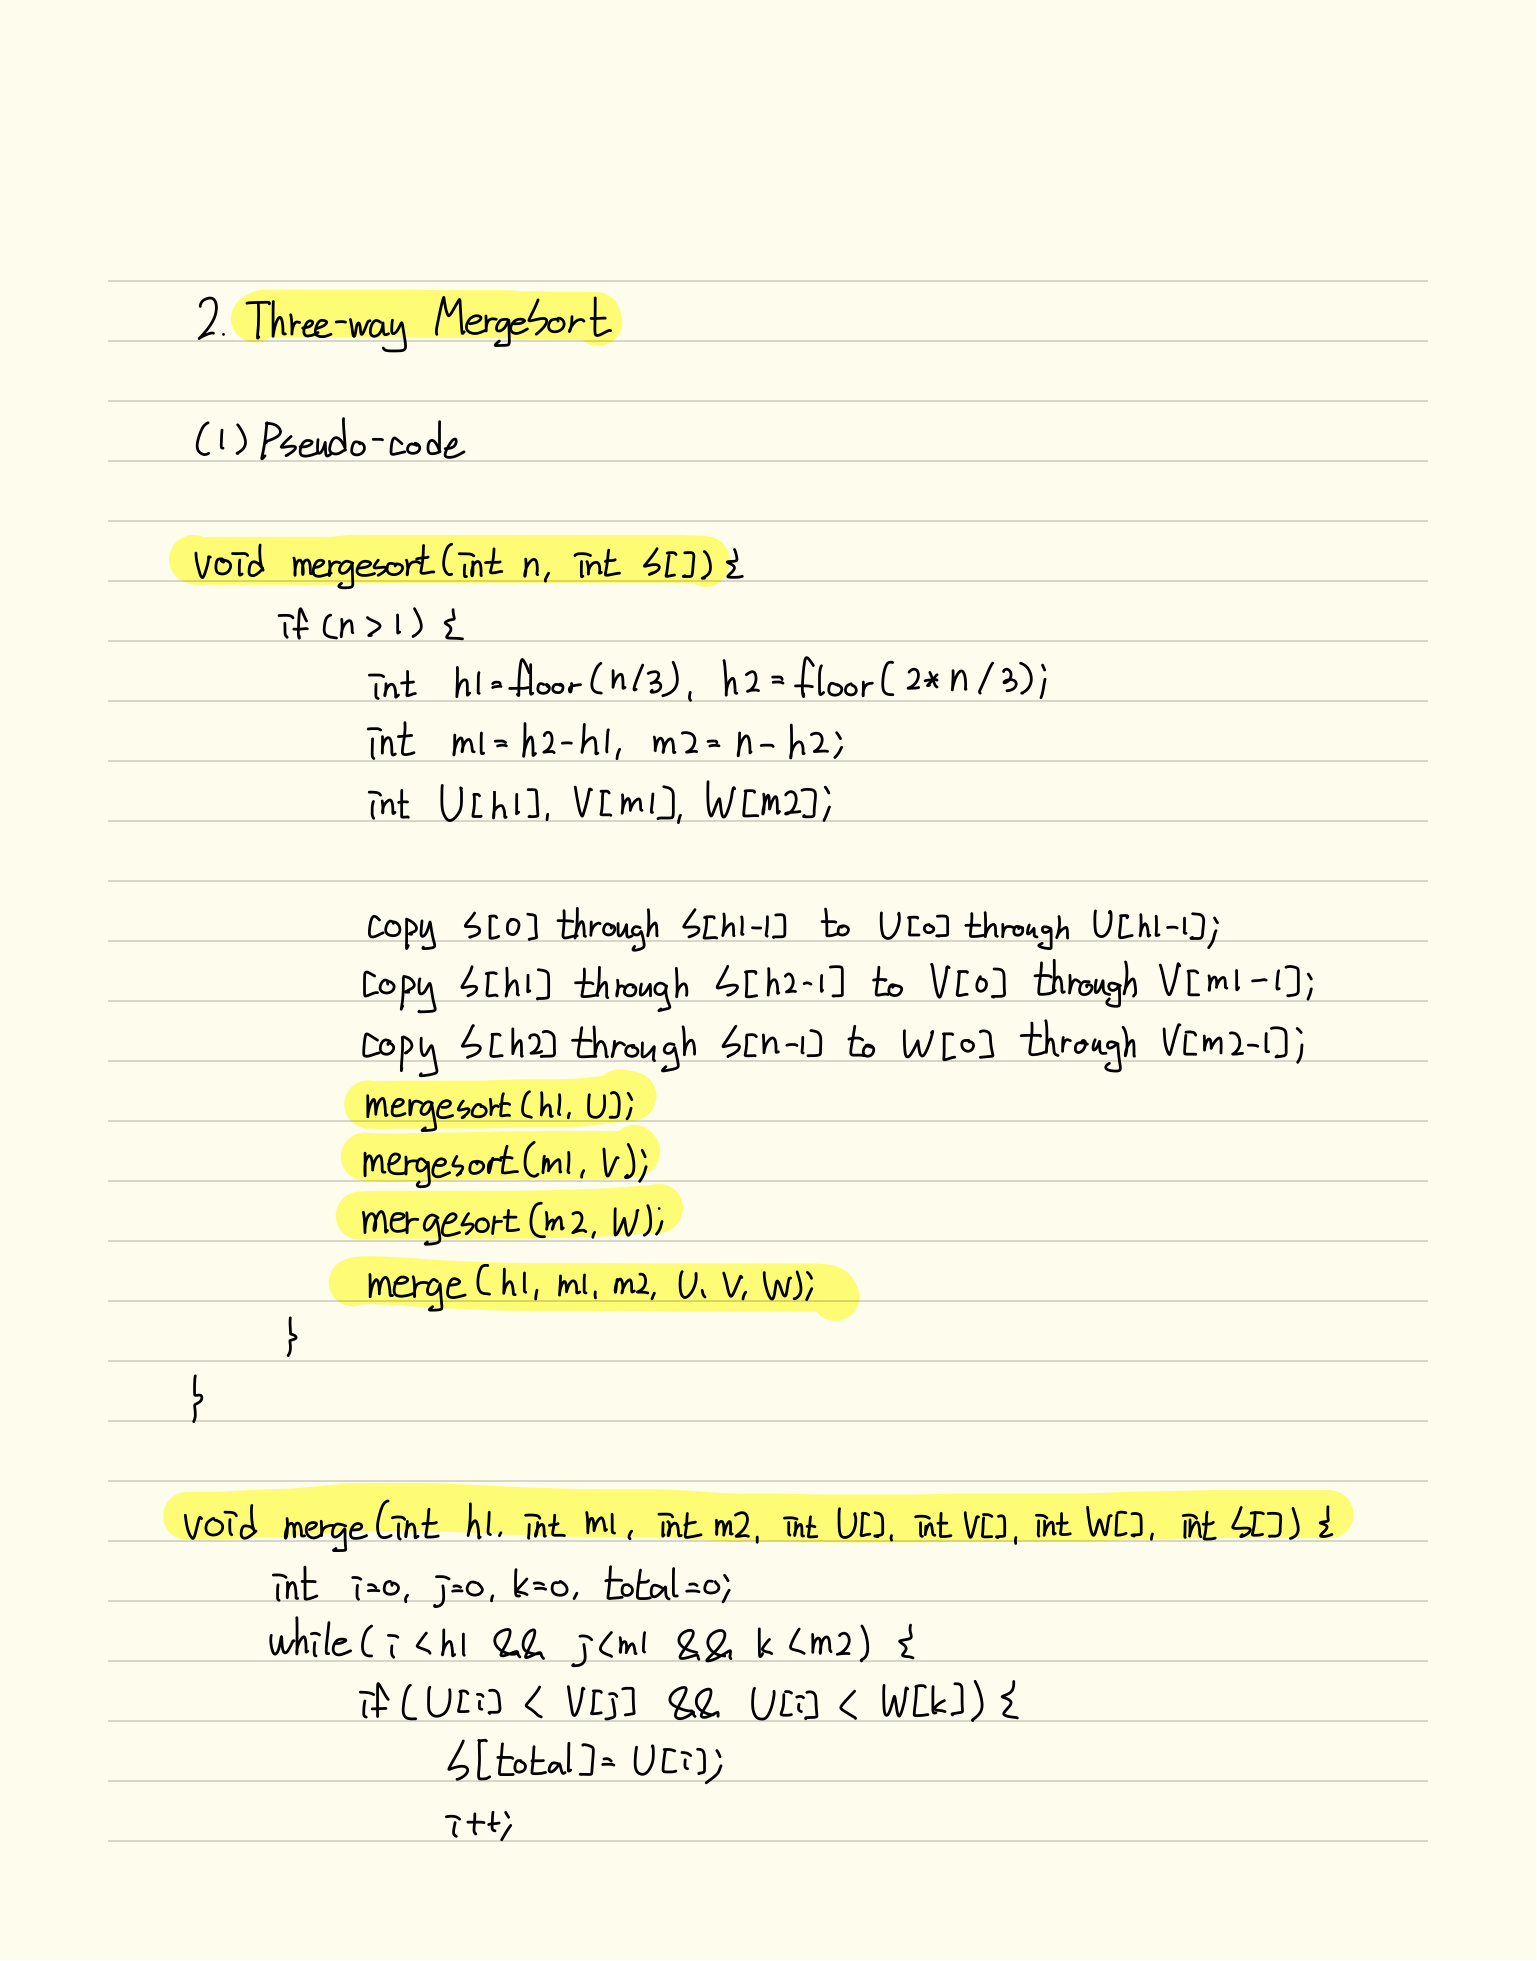 2. Three-way Mergesort
(1) Pseudo-code
void mergesort(int n, int S[]) {
if (n > 1) {
int h1 = floor(n/3), h2 = floor(2* n / 3);
int m1 = h2-h1, m2 = n - h2;
int U[h1], V[m1], W[m2];
copy S[0] through S[h1-1] to U[0] through U[h1-1];
copy S[h1] through S[h2-1] to V[0] through V[m1-1];
copy S[h2] through S[n-1] to W[0] through V[m2-1];
mergesort(h1, U);
mergesort(m1, V);
mergesort(m2, W);
merge(h1, m1, m2, U, V, W);
}
}
void merge(int h1, int m1, int m2, int U[], int V[], int W[], int S[]) {
int i=0, j=0, k=0, total=0;
while(i < h1 && j < m1 && k < m2) {
if(U[i] < V[j] && U[i] < W[k]) {
S[total] = U[i];
i++;